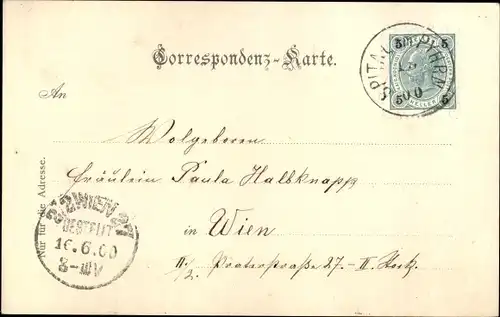 Correspondenz-Karte.
SPITAL A/PYHRN
5 5
HELLER
5 5
An
Wolgeboren
Fräulein Paula Halbknapp
in Wien
II/2. Praterstraße 27. II. Stock.
Nur für die Adresse.
WIEN
BESTELLT
16.6.00